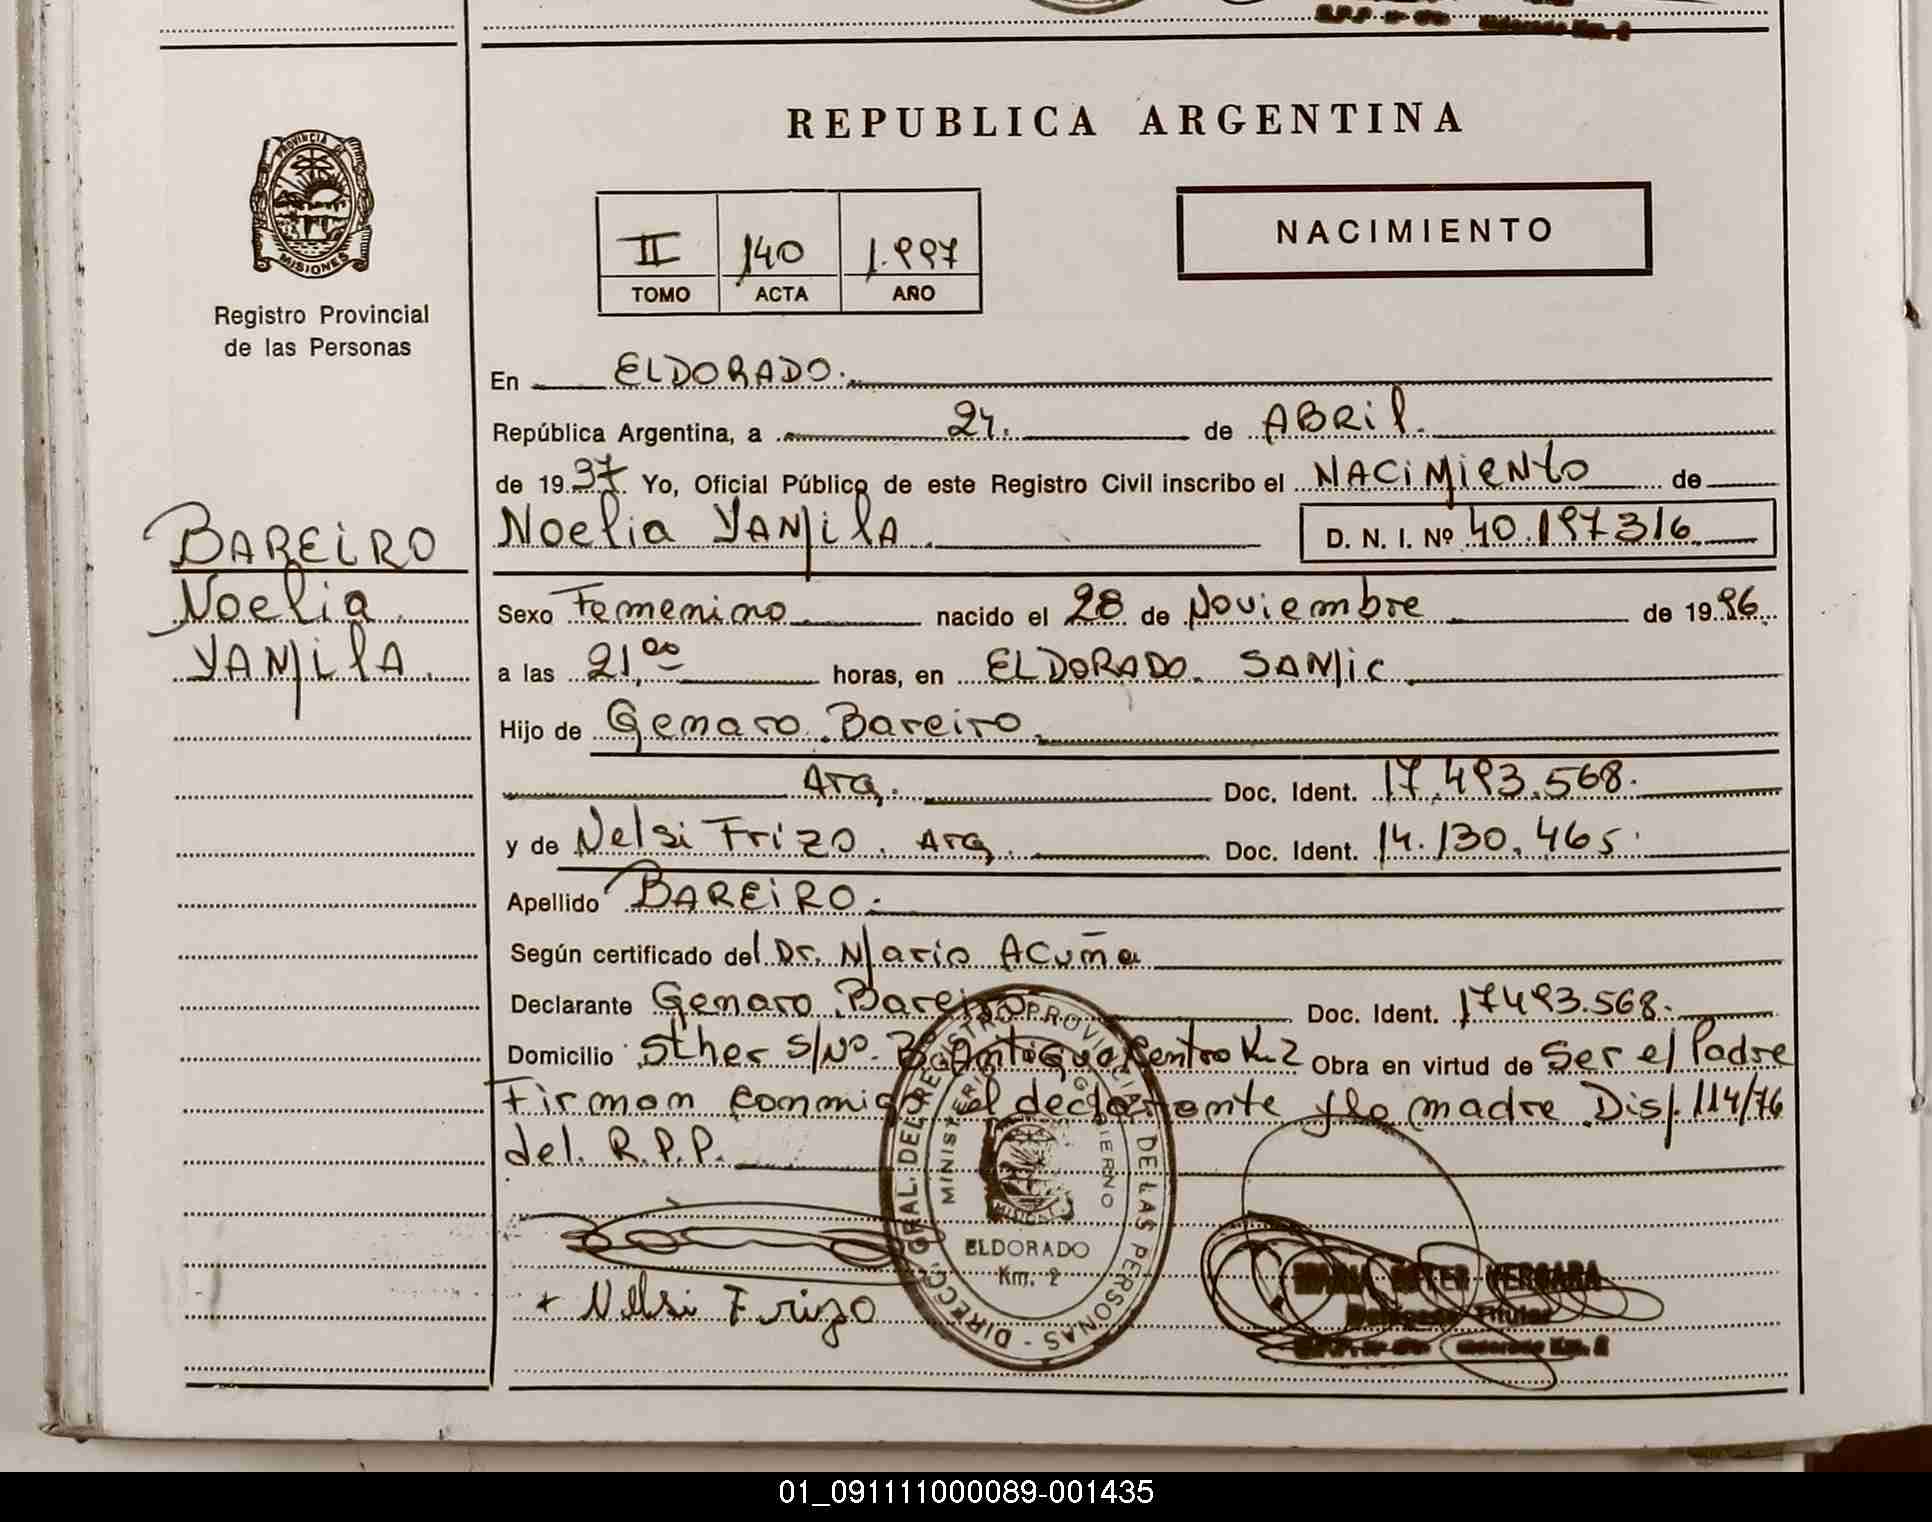 REPUBLICA ARGENTINA
PROVINCIA DE
MISIONES
Registro Provincial
de las Personas
II 140 1.997
TOMO ACTA AÑO
NACIMIENTO
En ELDORADO.
República Argentina, a 24. de ABRil.
de 19 97. Yo, Oficial Público de este Registro Civil inscribo el NACiMieNto de
BAREiRO
Noelia
YAMilA.
Noelia YAMilA. D. N. I. Nº 40.197316
Sexo Femenino nacido el 28 de Noviembre de 19 96.
a las 21,00 horas, en ELDORADO. SAMic.
Hijo de Genaro Bareiro.
Arg. Doc. Ident. 17.493.568.
y de Nelsi Frizo. Arg. Doc. Ident. 14.130.465.
Apellido BAREiRO.
Según certificado del Dr. Mario ACuña
Declarante Genaro Bareiro Doc. Ident. 17493.568.
Domicilio Sther S/Nº. Bº Antiguo Centro Km 2 Obra en virtud de Ser el Padre
Firman conmigo el declarante y la madre Disp. 114/76
del. R.P.P.
DIRECC. GRAL. DEL REGISTRO PROVINCIAL DE LAS PERSONAS
MINISTERIO GOBIERNO
MISIONES
ELDORADO
Km. 2
+ Nelsi Frizo
VERGARA
Titular
Km. 2
01_091111000089-001435